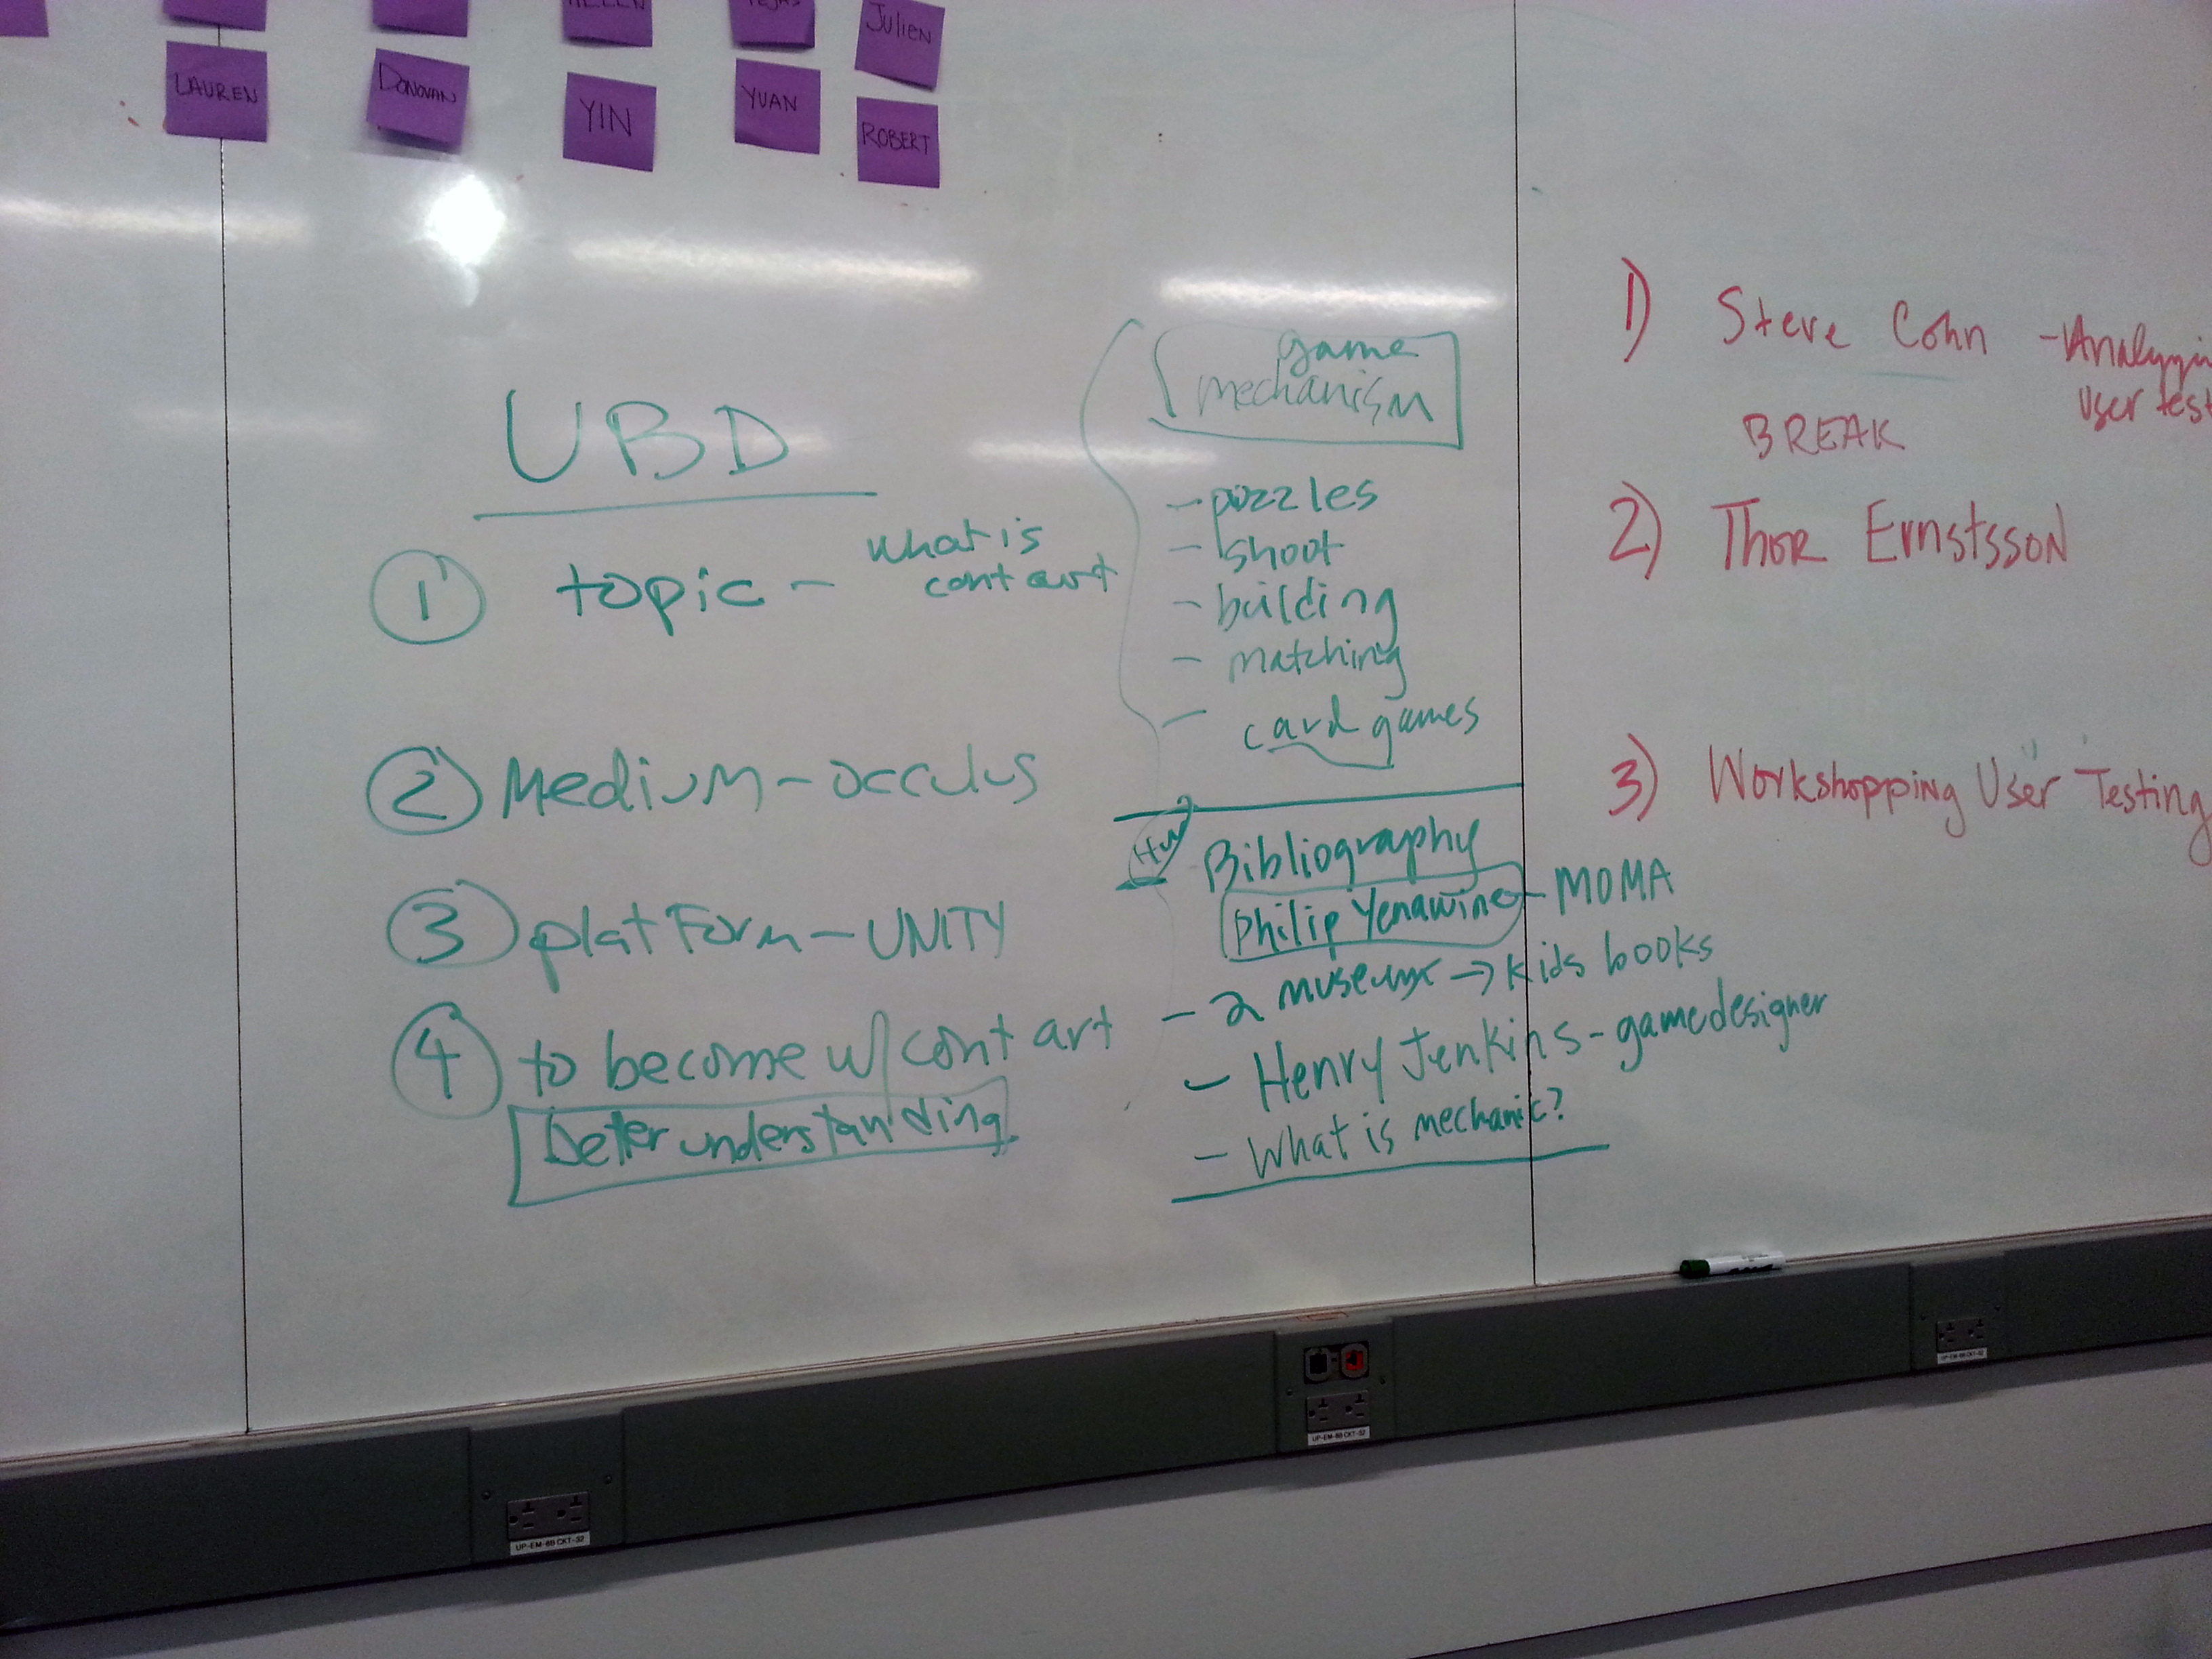 JULIEN
LAUREN
DONOVAN
YIN
YUAN
ROBERT
UBD
1 topic - what is
cont art
2 Medium - occulus
3 platform - UNITY
4 to become w/ cont art
better understanding
game
mechanism
- puzzles
- shoot
- building
- matching
- card games
HW
Bibliography
Philip Yenawine - MOMA
- 2 museum → kids books
- Henry Jenkins - game designer
- What is mechanic?
1) Steve Cohn - Analyzin
User test
BREAK
2) Thor Ernstsson
3) Workshopping User Testing
UP-EM-8B CKT-52
UP-EM-8B CKT-52
UP-EM-8B CKT-52